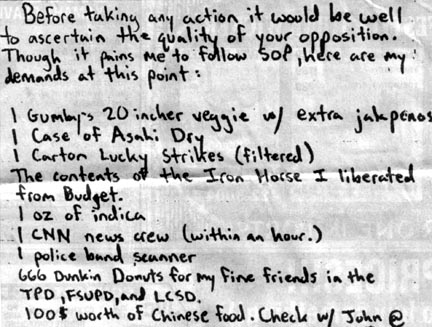 Before taking any action it would be well
to ascertain the quality of your opposition.
Though it pains me to follow SOP, here are my
demands at this point:
1 Gumby's 20 incher veggie w/ extra jalapenos
1 Case of Asahi Dry
1 Carton Lucky Strikes (filtered)
The contents of the Iron Horse I liberated
from Budget.
1 oz of indica
1 CNN news crew (within an hour.)
1 police band scanner
666 Dunkin Donuts for my fine friends in the
TPD, FSUPD, and LCSD.
100$ worth of Chinese food. Check w/ John @